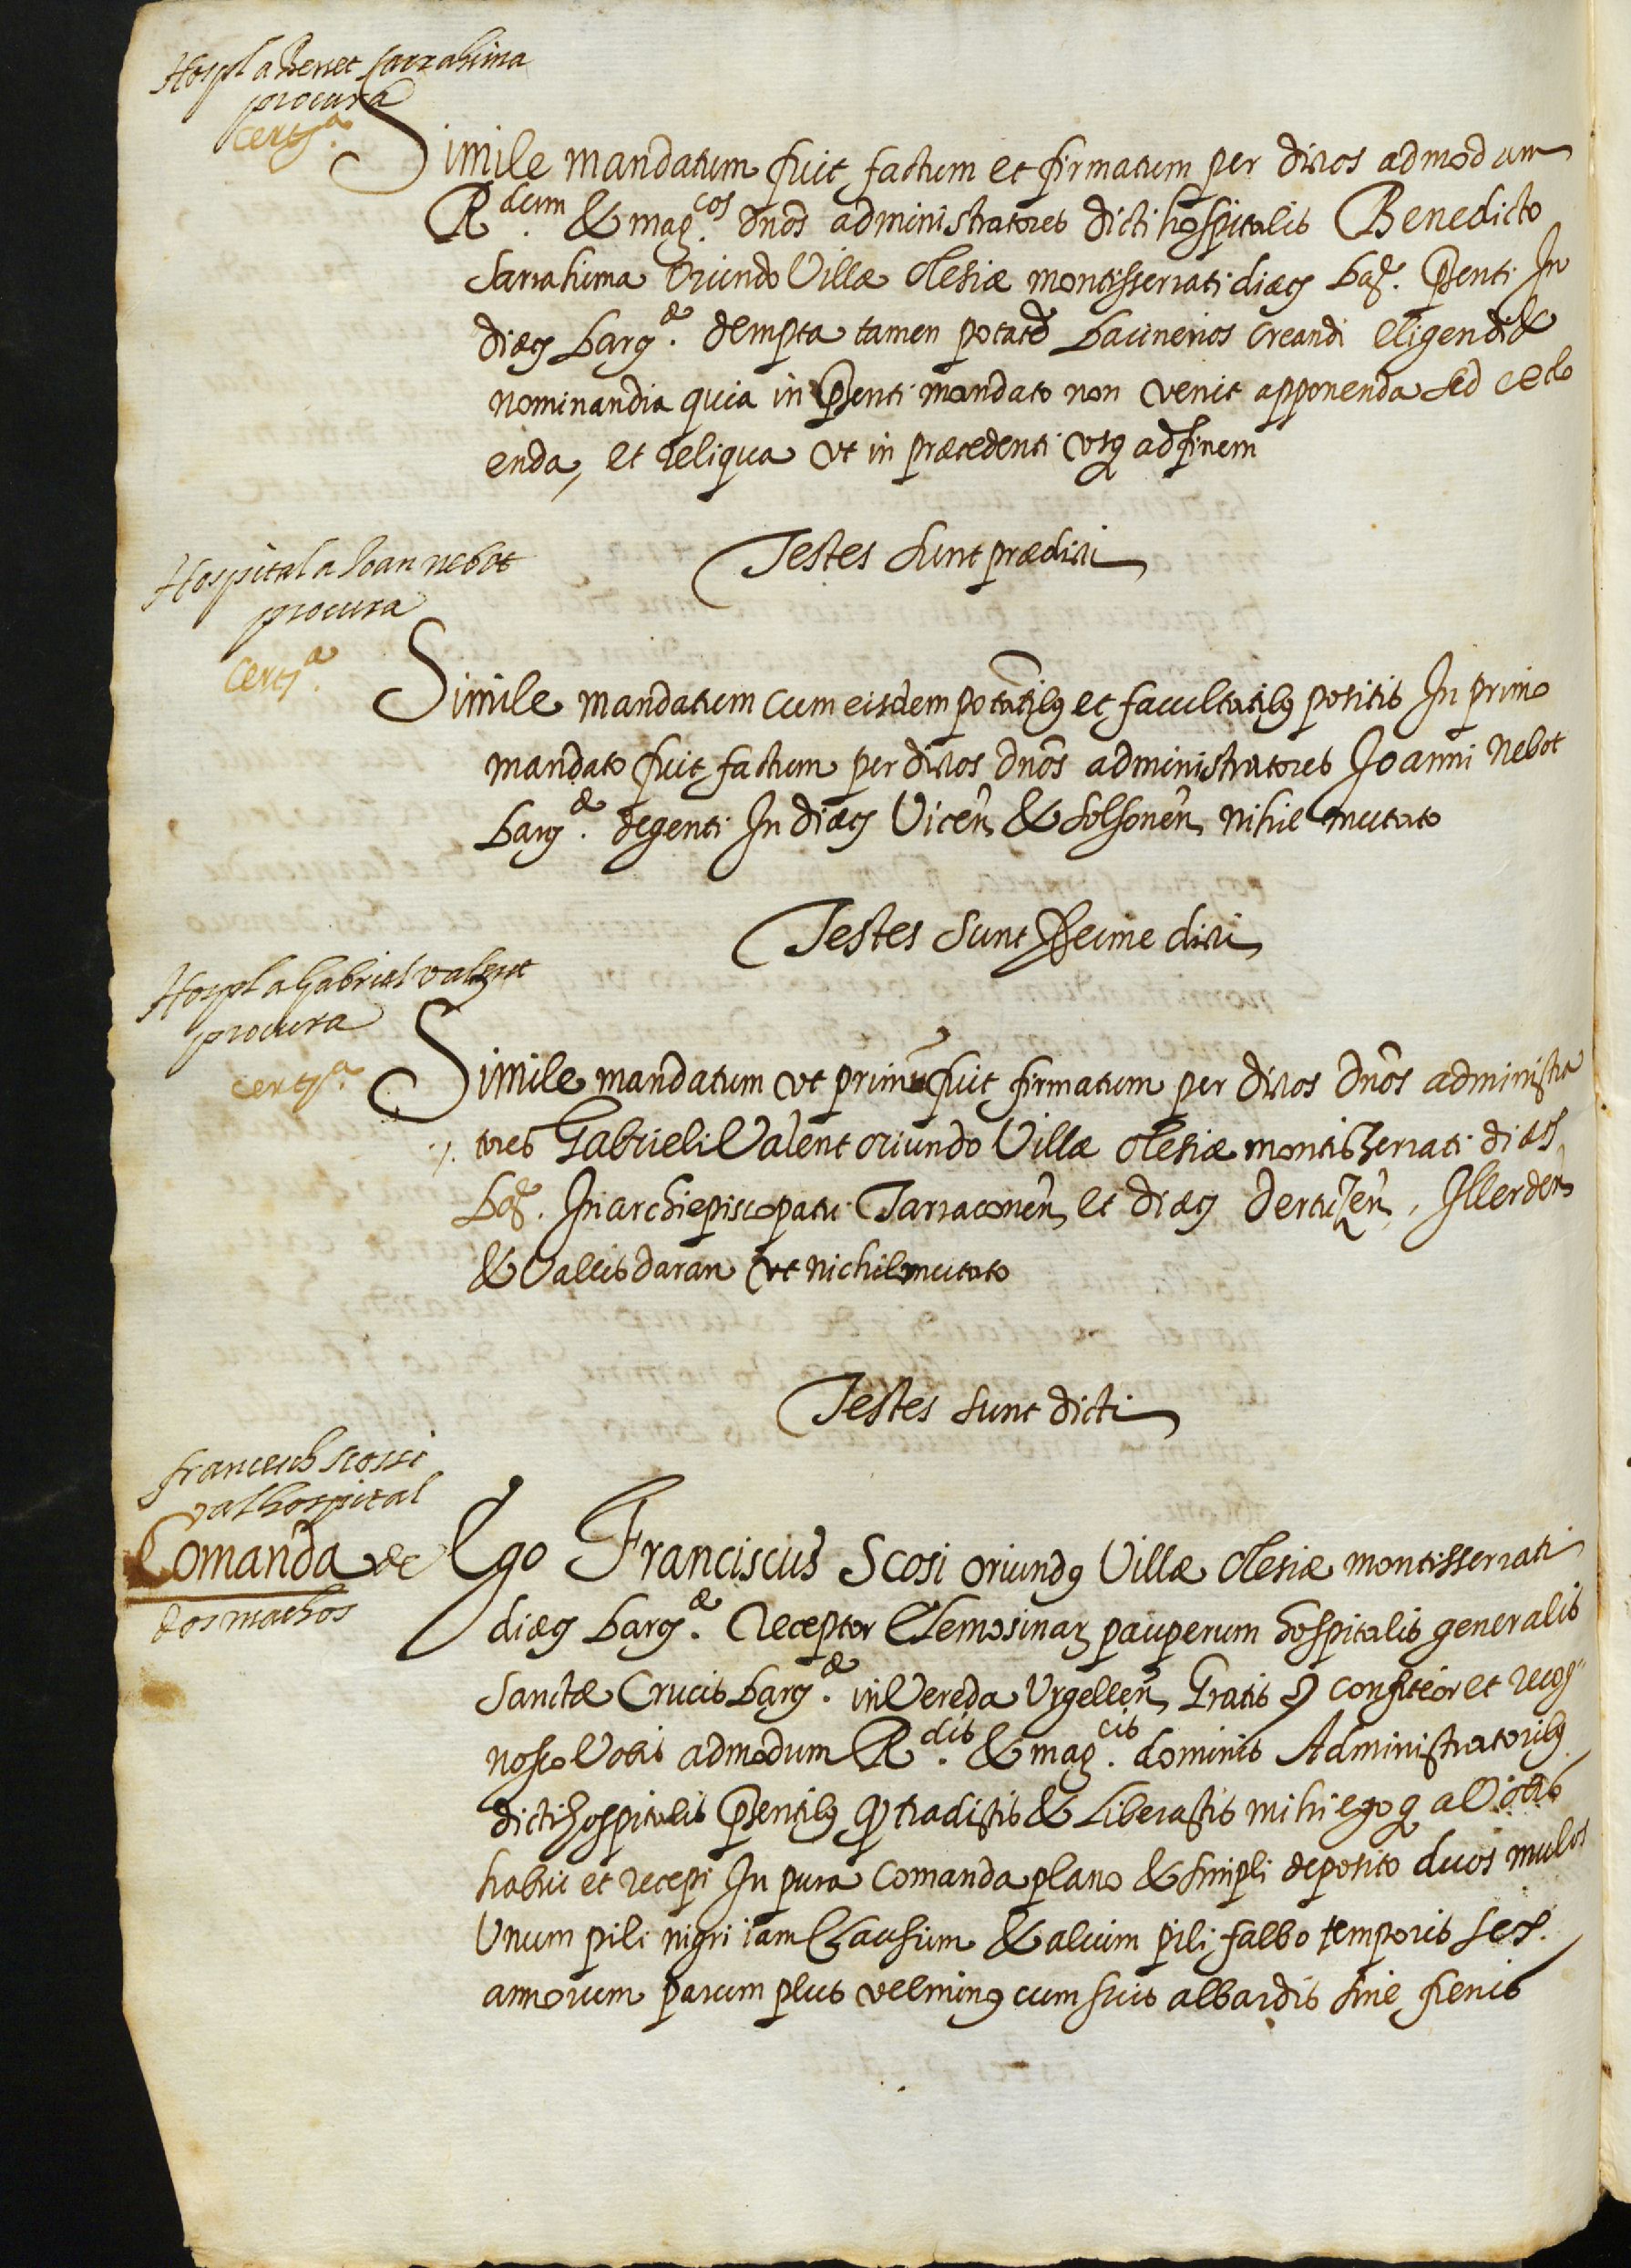 Hospl a Benet sarrahima
procura
certª.
Simile mandatum fuit factum et firmatum per dictos admodum
Rdum. & magcos. dnos administratores dicti hospitalis Benedicto
Sarrahima oriundo Villæ olesiæ montisserrati diæcs bare. pnti In
diæcs barne. dempta tamen potate bacinerios creandi eligendi &
nominandi a quia in pnti mandato non venit apponenda sed eclo
enda, et reliqua ut in præcedenti usq ad finem
Testes sunt prædicti
Hospital a Joan nebot
procura
certª.
Simile mandatum cum eisdem potatibus et facultatibus positis In primo
mandato fuit factum per dictos dnos administratores Joanni Nebot
barne. degenti In diæcs Vicen & solsonen nihil mutato
Testes sunt proxime dicti
Hospl a Gabriel valent
procura
certª.
Simile mandatum ut primu fuit firmatum per dictos dnos administra
tores Gabrieli Valent oriundo Villæ olesiæ montiszerrati diæcs
bare. In archiepiscopatu Tarraconen et diæcs dertuzen, Illerden
& Vallis daran ut nichil mutato
Testes sunt dicti
francesch scossi
al hospital
Comanda de
dos machos
Ego Franciscus Scosi oriundus Villæ olesiæ montisserrati
diæcs barne. Receptor Elemosinar pauperum hospitalis generalis
sanctæ Crucis barne. in Vereda Urgellen Gratis &c confiteor et recog
nosco Vobis admodum Rdis. & magcis. dominis Administratoribus
dicti hospitalis pntibus q tradistis & liberastis mihi egoq a Vobis
habui et recepi In pura comanda plano & simpli deposito duos mulos
Unum pili nigri iam Clausum & alium pili falbo temporis sex.
annorum parum plus vel minus cum suis albardis sine frenis